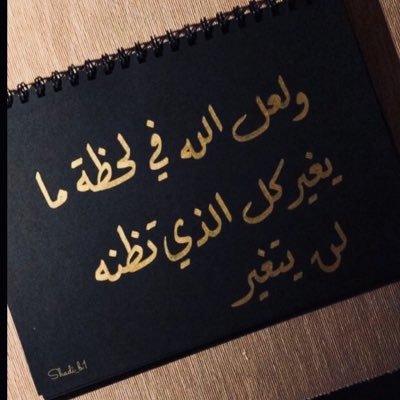 ولعل الله في لحظة ما
يغير كل الذي تظنه
لن يتغير
Shadi_k1